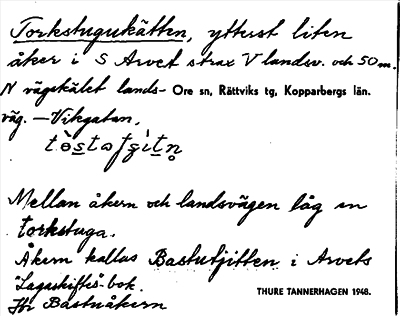 Torkstugukätten, ytterst liten
åker i S Arvet strax V landsv. och 50 m.
N vägskälet lands- Ore sn, Rättviks tg, Kopparbergs län.
väg. – Vikgatan.
Mellan åkern och landsvägen låg en
torkstuga.
Åkern kallas Bastutjitten i Arvets
Lagaskifts-bok.
THURE TANNERHAGEN 1948.
Jfr Bastuåkern